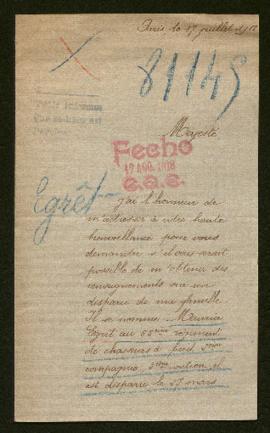 Paris le 17 juillet
81145
Majesté
Fecho
17 AGO. 1918
Egrêt
j'ai l'honneur de
m'adresser à votre haute
bienveillance pour vous
demander s'il vous serait
possible de m'obtenir des
renseignements sur un
disparu de ma famille
Il se nomme
Egrêt au 66ème régiment
de chasseurs à pied, 5ème
compagnie, section, il
est disparu le 27 mars